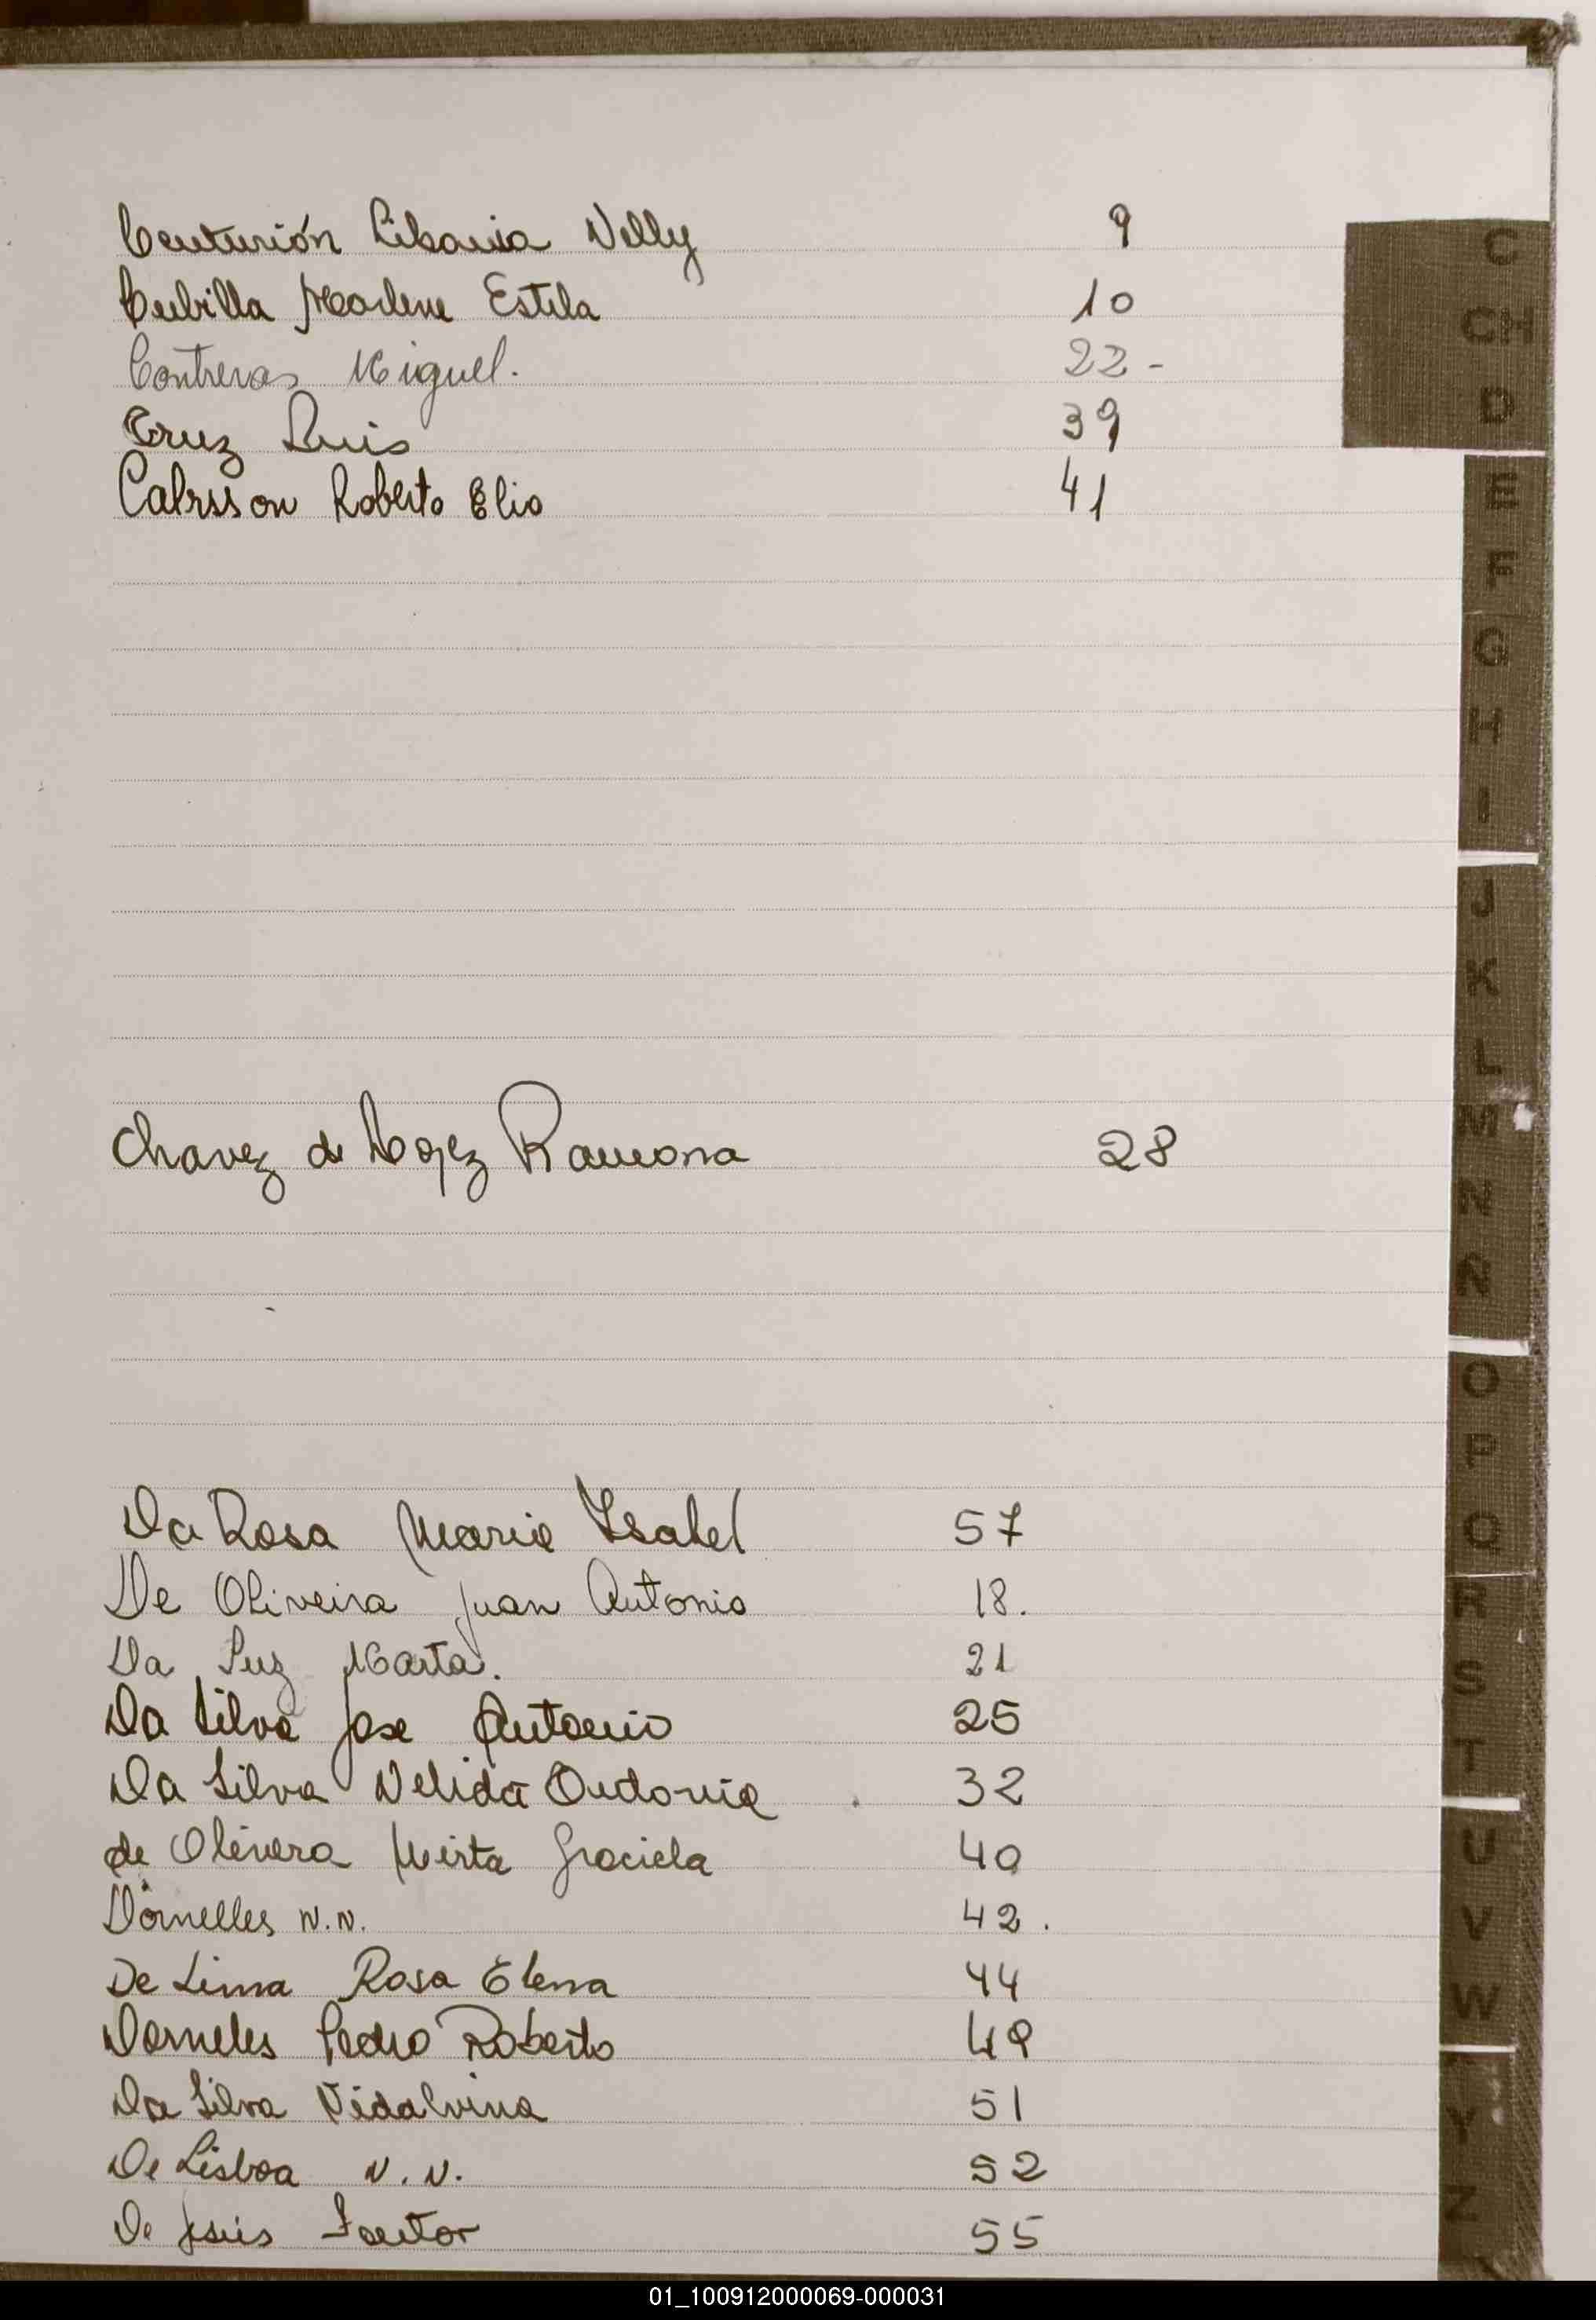 Centurión Libania Nelly 9
Cubilla Marlene Estela 10
Contreras Miguel. 22-
Cruz Luis 39
Calrsson Roberto Elio 41
Chavez de Lopez Ramona 28
Da Rosa Maria Ysabel 57
De Oliveira Juan Antonio 18.
Da Luz Marta. 21
Da Silva Jose Antonio 25
Da Silva Nelida Ordonia 32
de Olivera Mirta Graciela 40
Dornelles N.N. 42.
De Lima Rosa Elena 44
Dorneles Pedro Roberto 49
Da Silva Vidalvina 51
De Lisboa N.N. 52
De Jesús Santor 55
C
CH
D
E
F
G
H
I
J
K
L
M
N
Ñ
O
P
Q
R
S
T
U
V
W
Y
Z
01_100912000069-000031